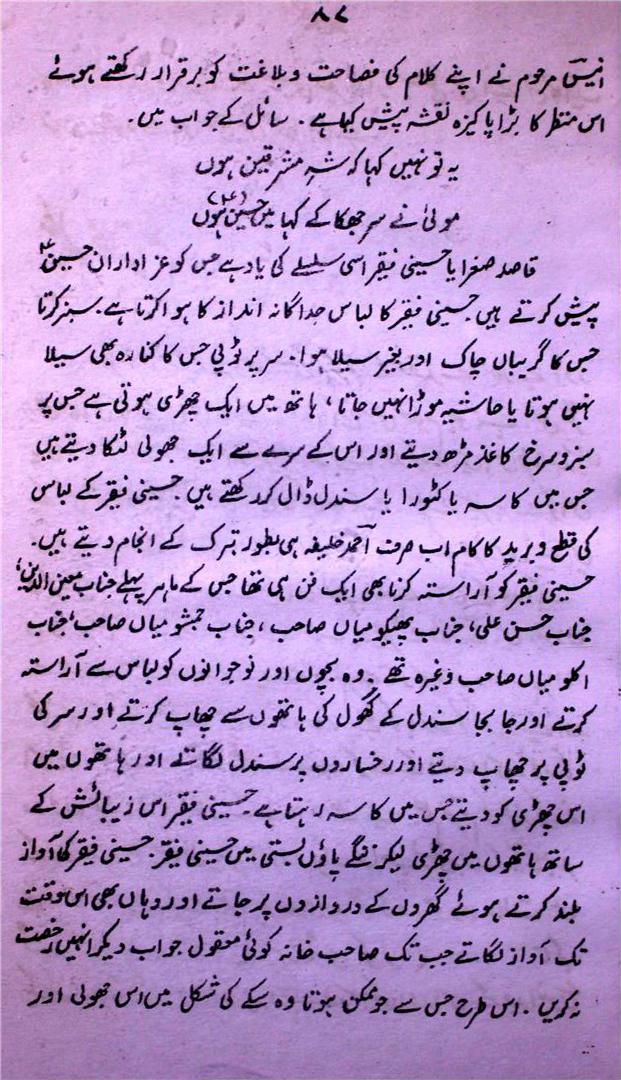 ۸۷
انیسؔ مرحوم نے اپنے کلام کی فصاحت و بلاغت کو برقرار رکھتے ہوئے
اس منظر کا بڑا پاکیزہ نقشہ پیش کیا ہے۔ سائل کے جواب میں۔
یہ تو نہیں کہا کہ شہِ مشرقین ہوں
مولیٰ نے سر جھکا کے کہا میں حسین ہوں (۴)
قاصد صغرا یا حسینی فیقر اسی سلسلے کی یاد ہے جس کو عزاداران حسینؑ
پیش کرتے ہیں حسینی فیقر کا لباس جداگانہ انداز کا ہوا کرتا ہے۔ سبز کرتا
جس کا گریباں چاک اور بغیر سیلا ہوا۔ سر پر ٹوپی جس کا کنارہ بھی سیلا
نہیں ہوتا یا حاشیہ موڑا نہیں جاتا، ہاتھ میں ایک چھڑی ہوتی ہے جس پر
سبز و سرخ کاغذ مڑھ دیتے اور اس کے سرے سے ایک جھولی لٹکا دیتے ہیں
جس میں کاسہ یا کٹورا یا سندل ڈال کر رکھتے ہیں حسینی فیقر کے لباس
کی قطع و برید کا کام اب صرف احمد خلیفہ ہی بطور تبرک کے انجام دیتے ہیں۔
حسینی فیقر کو آراستہ کرنا بھی ایک فن ہی تھا جس کے ماہر پہلے جناب معین الدین،
جناب حسن علی، جناب پھیکو میاں صاحب، جناب جمشو میاں صاحب، جناب
اکلو میاں صاحب وغیرہ تھے۔ وہ بچوں اور نوجوانوں کو لباس سے آراستہ
کرتے اور جا بجا سندل کے گھول کی ہاتھوں سے چھاپ کرتے اور سر کی
ٹوپی پر چھاپ دیتے اور رخساروں پر سندل لگاتے اور ہاتھوں میں
اس چھڑی کو دیتے جس میں کاسہ رہتا ہے۔ حسینی فیقر اس زیبائش کے
ساتھ ہاتھوں میں چھڑی لیکر ننگے پاؤں بستی میں حسینی فیقر۔ حسینی فیقر کی آواز
بلند کرتے ہوئے گھروں کے دروازوں پر جاتے اور وہاں بھی اس وقت
تک آواز لگاتے جب تک صاحب خانہ کوئی معقول جواب دیکر انہیں رخصت
نہ کریں۔ اس طرح جس سے جو ممکن ہوتا وہ سکے کی شکل میں اس جھولی اور